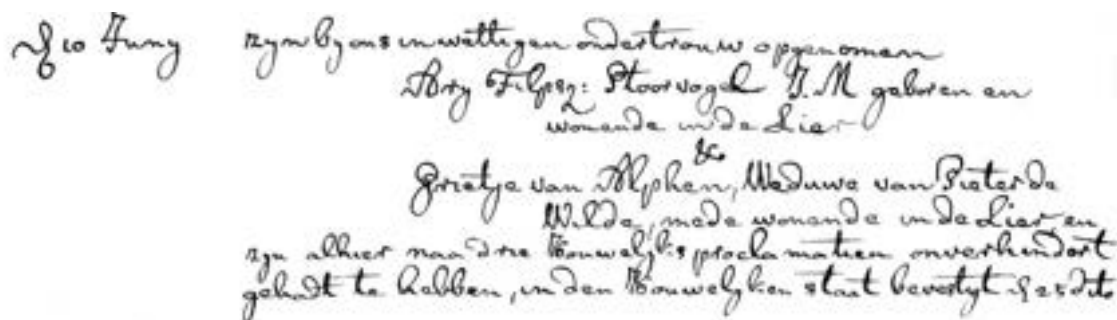 den 10 Juny zyn by ons in wettigen ondertrouw opgenomen
Ary Filpsz: Stoorvogel J.M geboren en
wonende in de Lier
&
Grietje van Alphen, Weduwe van Pieter de
Wilde, mede wonende in de Lier, en
zyn alhier naa drie Houwelyks proclamatien onverhindert
gehadt te hebben, in den Houwelyken staat bevestyt den 25 dito